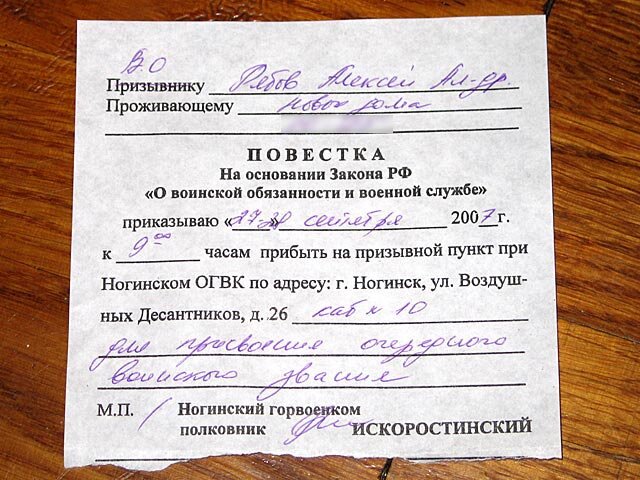 В.О
Призывнику Рябов Алексей Ал-др.
Проживающему нового дома
ПОВЕСТКА
На основании Закона РФ
«О воинской обязанности и военной службе»
приказываю «27-28» сентября 2007 г.
к 9 00 часам прибыть на призывной пункт при
Ногинском ОГВК по адресу: г. Ногинск, ул. Воздуш-
ных Десантников, д. 26 каб № 10
для присвоения очередного
воинского звания
М.П. Ногинский горвоенком
полковник ИСКОРОСТИНСКИЙ